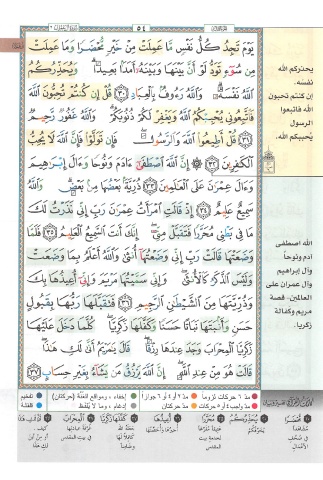 ٥٤
يَوْمَ تَجِدُ كُلُّ نَفْسٍ مَّا عَمِلَتْ مِنْ خَيْرٍ مُّحْضَرًا وَمَا عَمِلَتْ
مِن سُوٓءٍ تَوَدُّ لَوْ أَنَّ بَيْنَهَا وَبَيْنَهُۥٓ أَمَدًۢا بَعِيدًا ۗ وَيُحَذِّرُكُمُ
ٱللَّهُ نَفْسَهُۥ ۗ وَٱللَّهُ رَءُوفٌۢ بِٱلْعِبَادِ ٣٠ قُلْ إِن كُنتُمْ تُحِبُّونَ ٱللَّهَ
فَٱتَّبِعُونِى يُحْبِبْكُمُ ٱللَّهُ وَيَغْفِرْ لَكُمْ ذُنُوبَكُمْ ۗ وَٱللَّهُ غَفُورٌ رَّحِيمٌ
٣١ قُلْ أَطِيعُوا۟ ٱللَّهَ وَٱلرَّسُولَ ۖ فَإِن تَوَلَّوْا۟ فَإِنَّ ٱللَّهَ لَا يُحِبُّ
ٱلْكَٰفِرِينَ ٣٢ إِنَّ ٱللَّهَ ٱصْطَفَىٰٓ ءَادَمَ وَنُوحًا وَءَالَ إِبْرَٰهِيمَ
وَءَالَ عِمْرَٰنَ عَلَى ٱلْعَٰلَمِينَ ٣٣ ذُرِّيَّةًۢ بَعْضُهَا مِنۢ بَعْضٍ ۗ وَٱللَّهُ
سَمِيعٌ عَلِيمٌ ٣٤ إِذْ قَالَتِ ٱمْرَأَتُ عِمْرَٰنَ رَبِّ إِنِّى نَذَرْتُ لَكَ
مَا فِى بَطْنِى مُحَرَّرًا فَتَقَبَّلْ مِنِّىٓ ۖ إِنَّكَ أَنتَ ٱلسَّمِيعُ ٱلْعَلِيمُ ٣٥ فَلَمَّا
وَضَعَتْهَا قَالَتْ رَبِّ إِنِّى وَضَعْتُهَآ أُنثَىٰ وَٱللَّهُ أَعْلَمُ بِمَا وَضَعَتْ
وَلَيْسَ ٱلذَّكَرُ كَٱلْأُنثَىٰ ۖ وَإِنِّى سَمَّيْتُهَا مَرْيَمَ وَإِنِّىٓ أُعِيذُهَا بِكَ
وَذُرِّيَّتَهَا مِنَ ٱلشَّيْطَٰنِ ٱلرَّجِيمِ ٣٦ فَتَقَبَّلَهَا رَبُّهَا بِقَبُولٍ
حَسَنٍ وَأَنۢبَتَهَا نَبَاتًا حَسَنًا وَكَفَّلَهَا زَكَرِيَّا ۖ كُلَّمَا دَخَلَ عَلَيْهَا
زَكَرِيَّا ٱلْمِحْرَابَ وَجَدَ عِندَهَا رِزْقًا ۖ قَالَ يَٰمَرْيَمُ أَنَّىٰ لَكِ هَٰذَا ۖ
قَالَتْ هُوَ مِنْ عِندِ ٱللَّهِ ۖ إِنَّ ٱللَّهَ يَرْزُقُ مَن يَشَآءُ بِغَيْرِ حِسَابٍ ٣٧
يحذركم الله
نفسه.
إن كنتم تحبون
الله فاتبعوا
الرسول
يُحببكم الله.
الله اصطفى
آدم ونوحاً
وآل إبراهيم
وآل عمران على
العالمين. قصة
مريم وكفالة
زكريا.
مد ٦ حركات لزوماً
مد ٢ أو ٤ أو ٦ جوازاً
إخفاء، ومواقع الغنّة (حركتان)
تفخيم
مد واجب ٤ أو ٥ حركات
مد حركتان
إدغام، وما لا يُلفظ
قلقلة